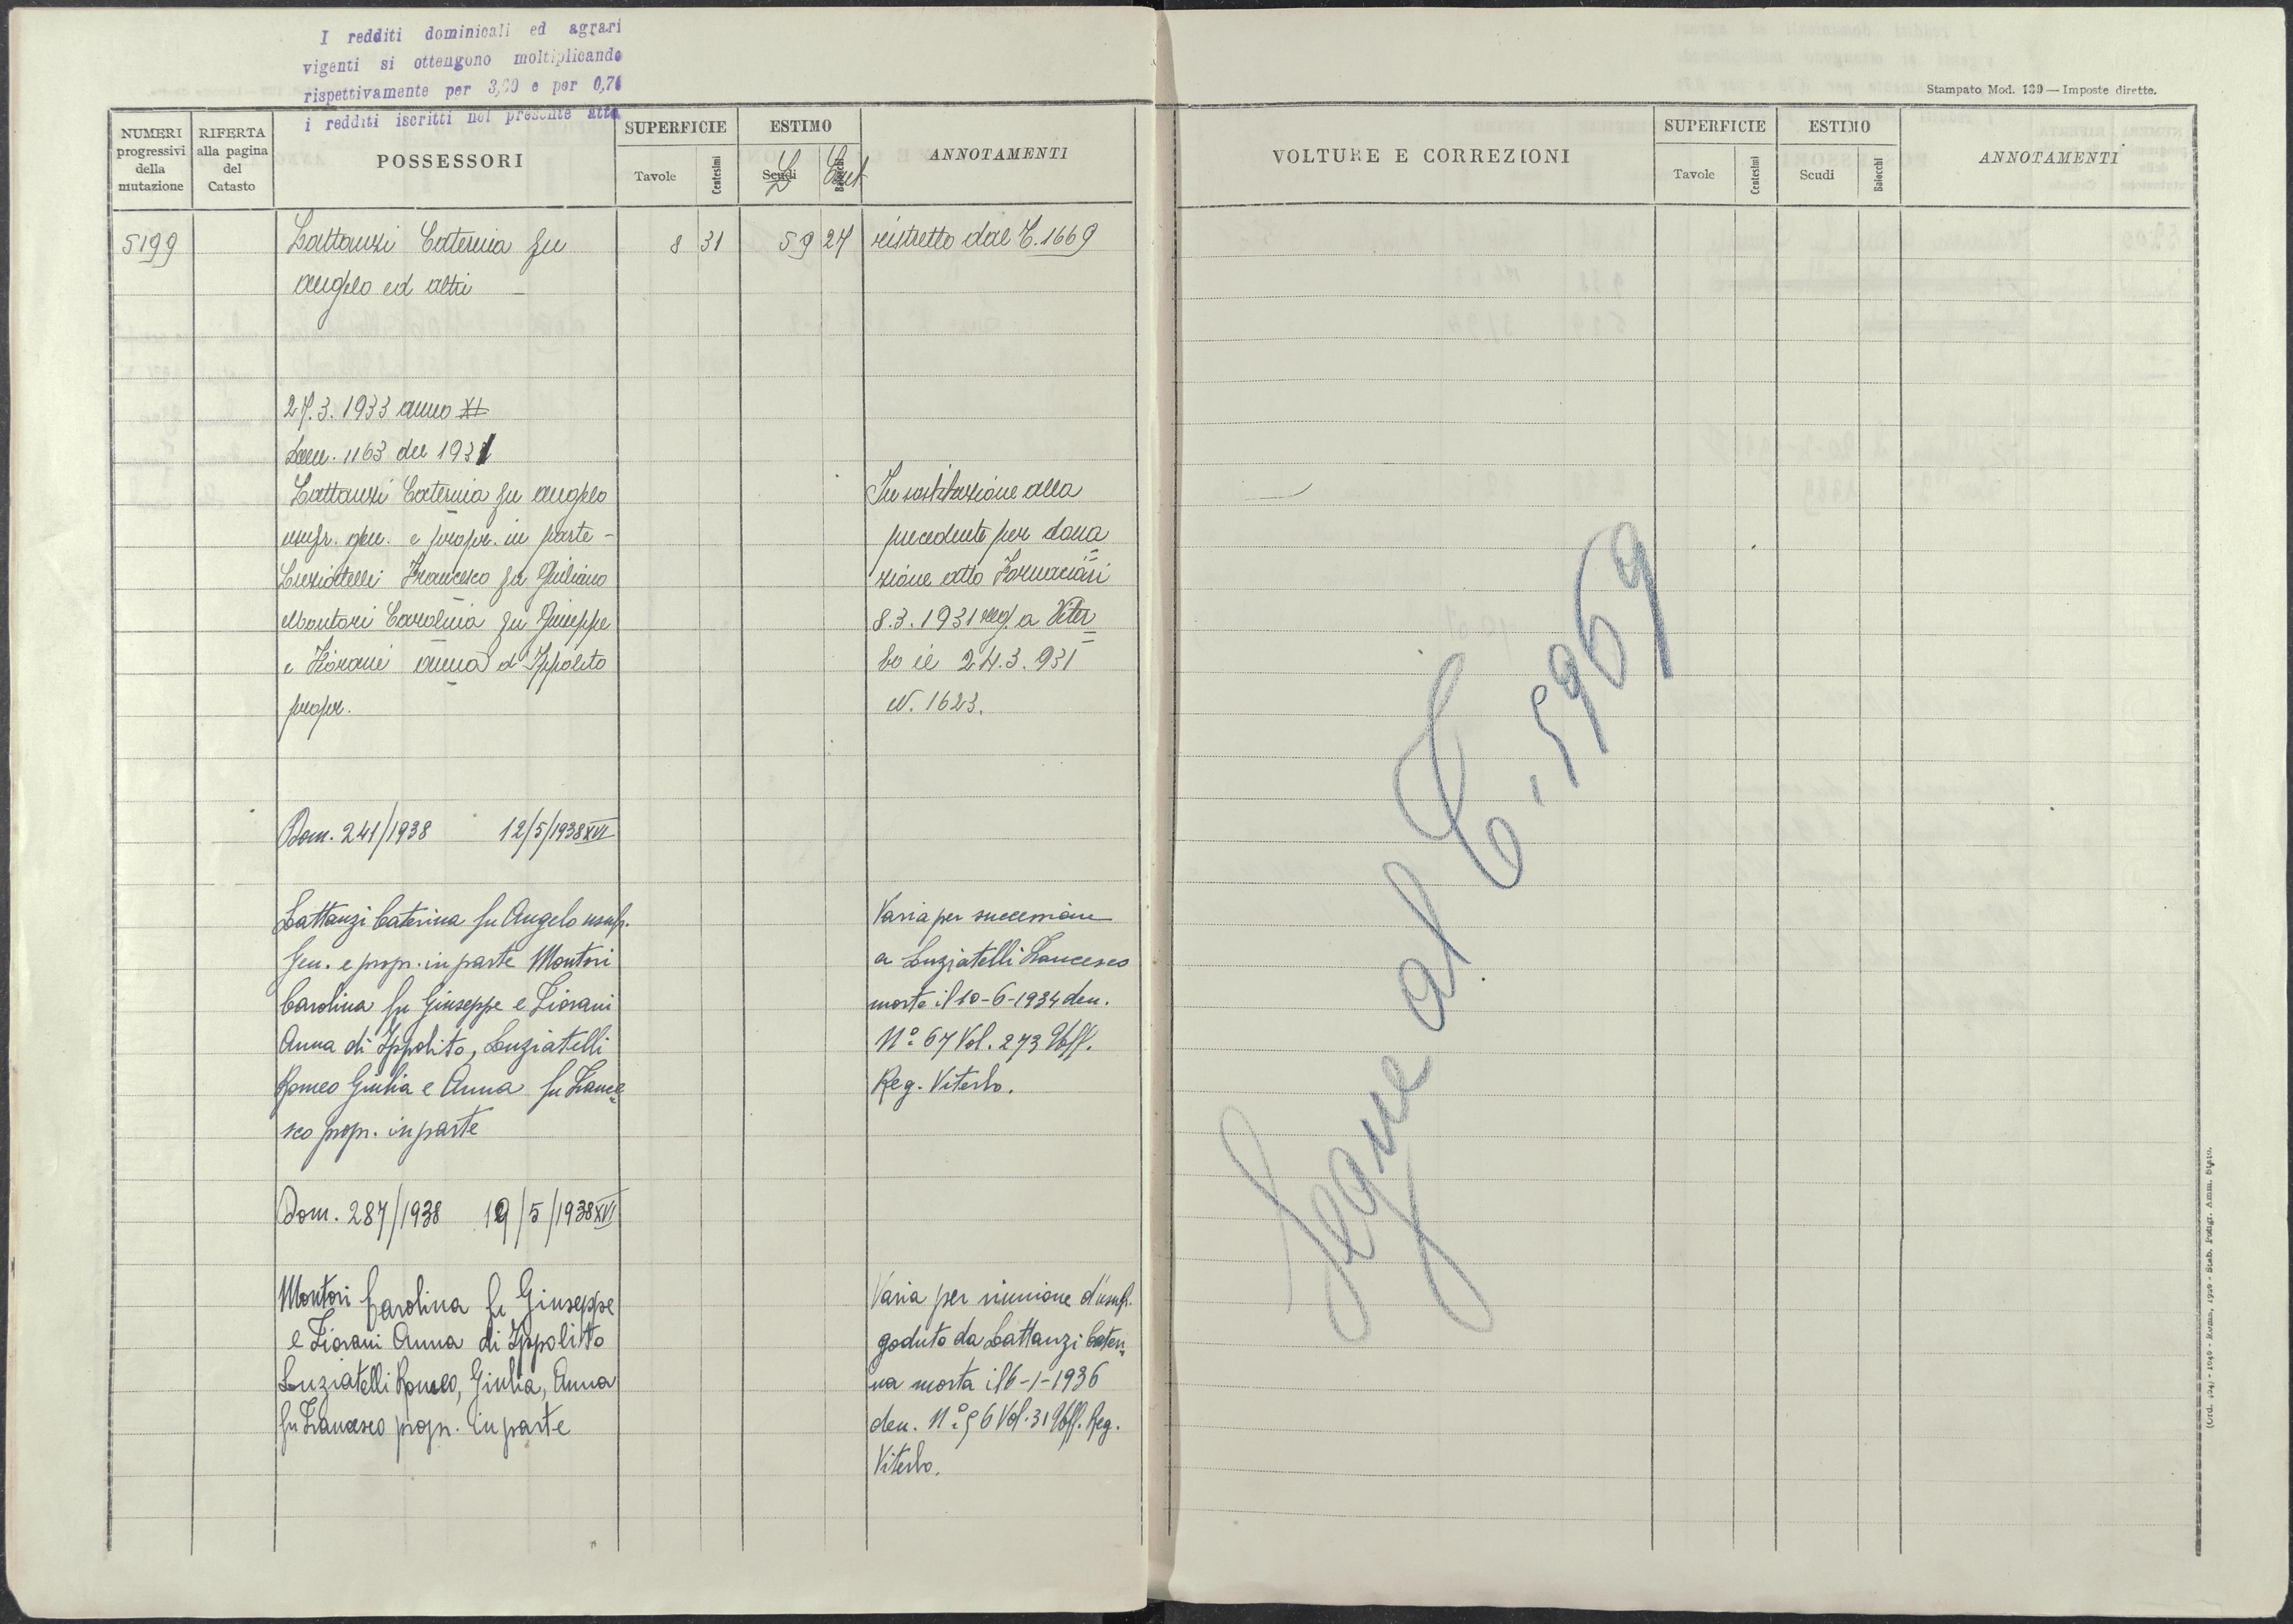 I redditi dominicali ed agrari
vigenti si ottengono moltiplicando
rispettivamente per 3,00 e per 0,76
i redditi iscritti nel presente atto
NUMERI
progressivi
della
mutazione
RIFERTA
alla pagina
del
Catasto
POSSESSORI
SUPERFICIE
Tavole
Centesimi
ESTIMO
Scudi
L
Baiocchi
Cent
ANNOTAMENTI
5199
Lattanzi Caterina fu
Angelo ed altri
8 31
59 27
ristretto dal C. 1669
27.3.1933 anno XI
Dom. 1163 del 1931
Lattanzi Caterina fu Angelo
usufr. gen. e propr. in parte -
Luziatelli Francesco fu Giuliano
Montori Carolina fu Giuseppe
e Fiorani Anna d'Ippolito
propr.
In sostituzione alla
precedente per dona
zione atto Fornaciari
8.3.1931 reg. a Viter
bo il 24.3.931
N. 1623.
Dom. 241/1938 12/5/1938 XVI
Lattanzi Caterina fu Angelo usufr.
Gen. e propr. in parte Montori
Carolina fu Giuseppe e Fiorani
Anna di Ippolito, Luziatelli
Romeo Giulia e Anna fu France
sco propr. in parte
Varia per successione
a Luziatelli Francesco
morto il 10-6-1934 den.
N° 67 Vol. 273 Uff.
Reg. Viterbo.
Dom. 287/1938 19/5/1938 XVI
Montori Carolina fu Giuseppe
e Fiorani Anna di Ippolito
Luziatelli Romeo, Giulia, Anna
fu Francesco propr. in parte
Varia per riunione d'usufr.
goduto da Lattanzi Cateri
na morta il 6-1-1936
den. N° 96 Vol. 31 Uff. Reg.
Viterbo.
Stampato Mod. 139 — Imposte dirette.
VOLTURE E CORREZIONI
SUPERFICIE
Tavole
Centesimi
ESTIMO
Scudi
Baiocchi
ANNOTAMENTI
Segue al C. 5969